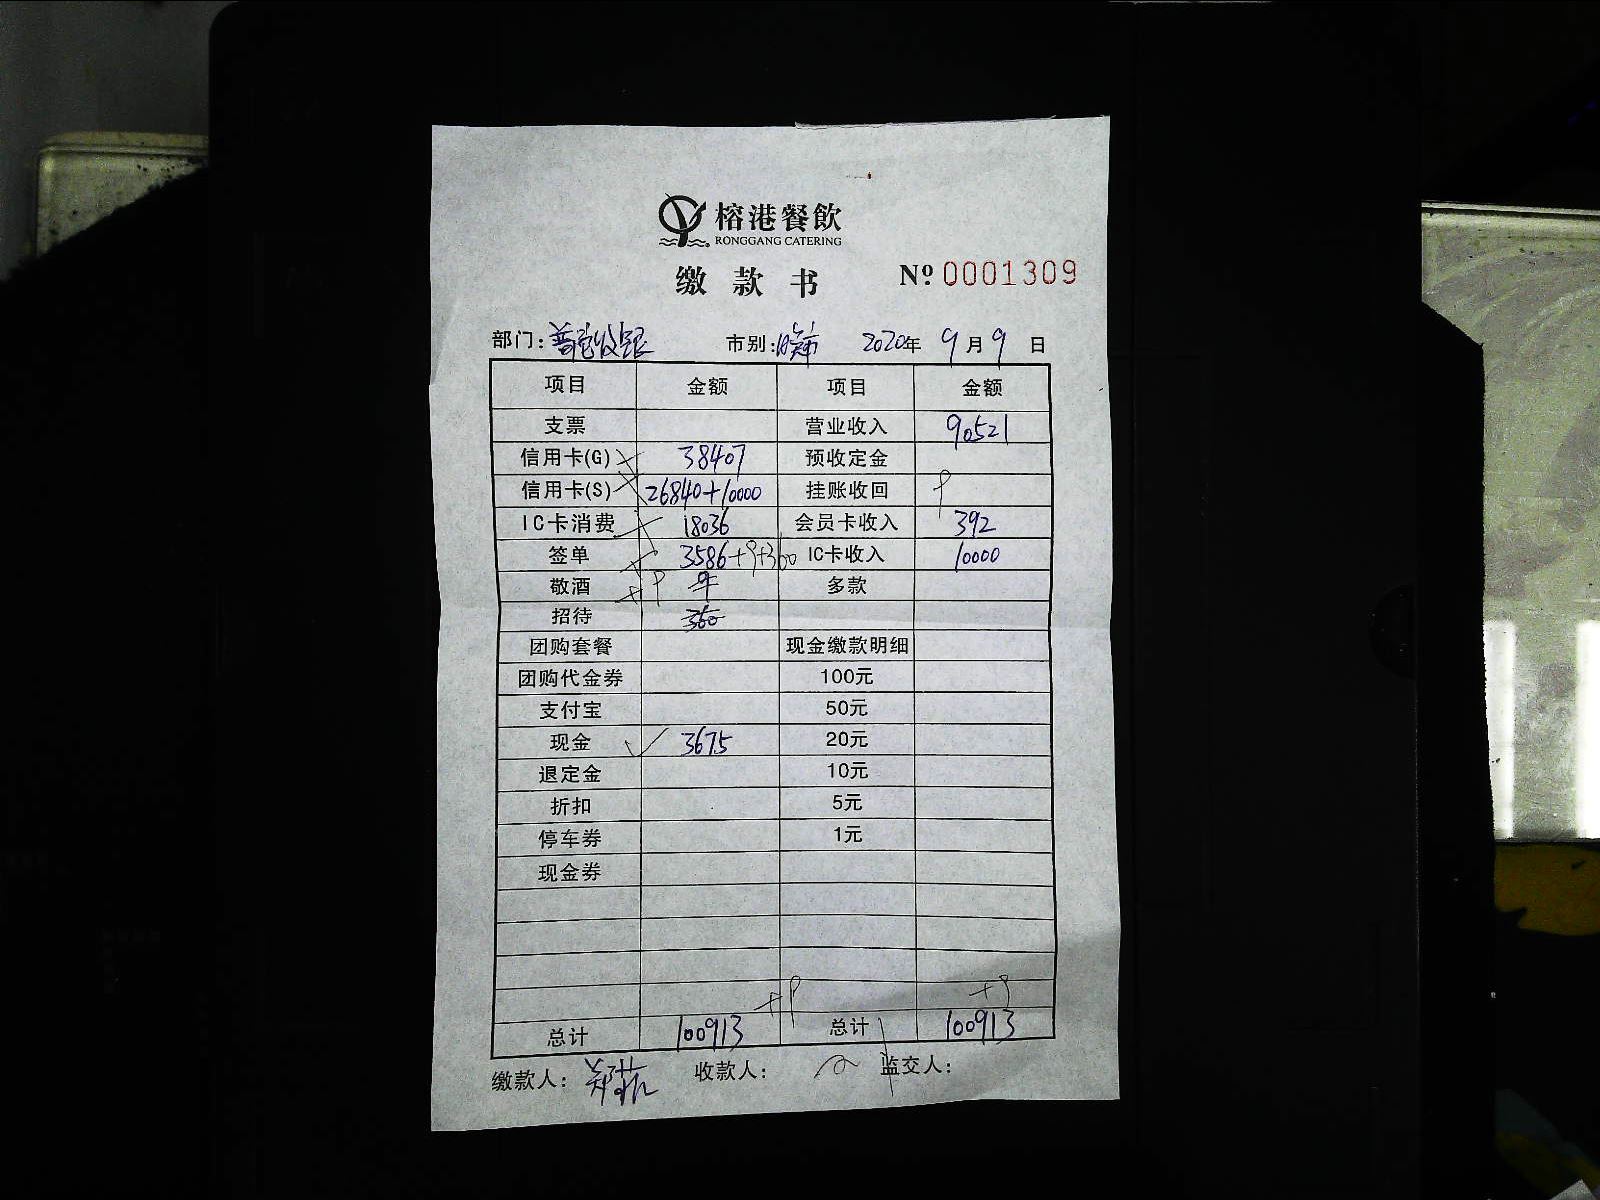 榕港餐飲
RONGGANG CATERING
缴款书 Nº 0001309
部门: 市别: 2020年 9月9日
项目 金额 项目 金额
支票 营业收入 90521
信用卡(G) 38407 预收定金
信用卡(S) 26840+10000 挂账收回
IC卡消费 18036 会员卡收入 392
签单 3586+9+360 IC卡收入 10000
敬酒 9 多款
招待 360
团购套餐 现金缴款明细
团购代金券 100元
支付宝 50元
现金 3675 20元
退定金 10元
折扣 5元
停车券 1元
现金券
+9 +9
总计 100913 总计 100913
缴款人: 收款人: 监交人: